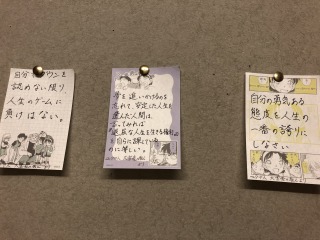 自分がダウンを
認めない限り
人生のゲームに
負けはない。
夢を追いかけるのを
忘れて、安定した人生を
選んだ人間は、
言ってみれば
退屈な人生を生きる権利
を自らに課している
のに等しい。
自分の勇気ある
態度を人生の
一番の誇りに
しなさい